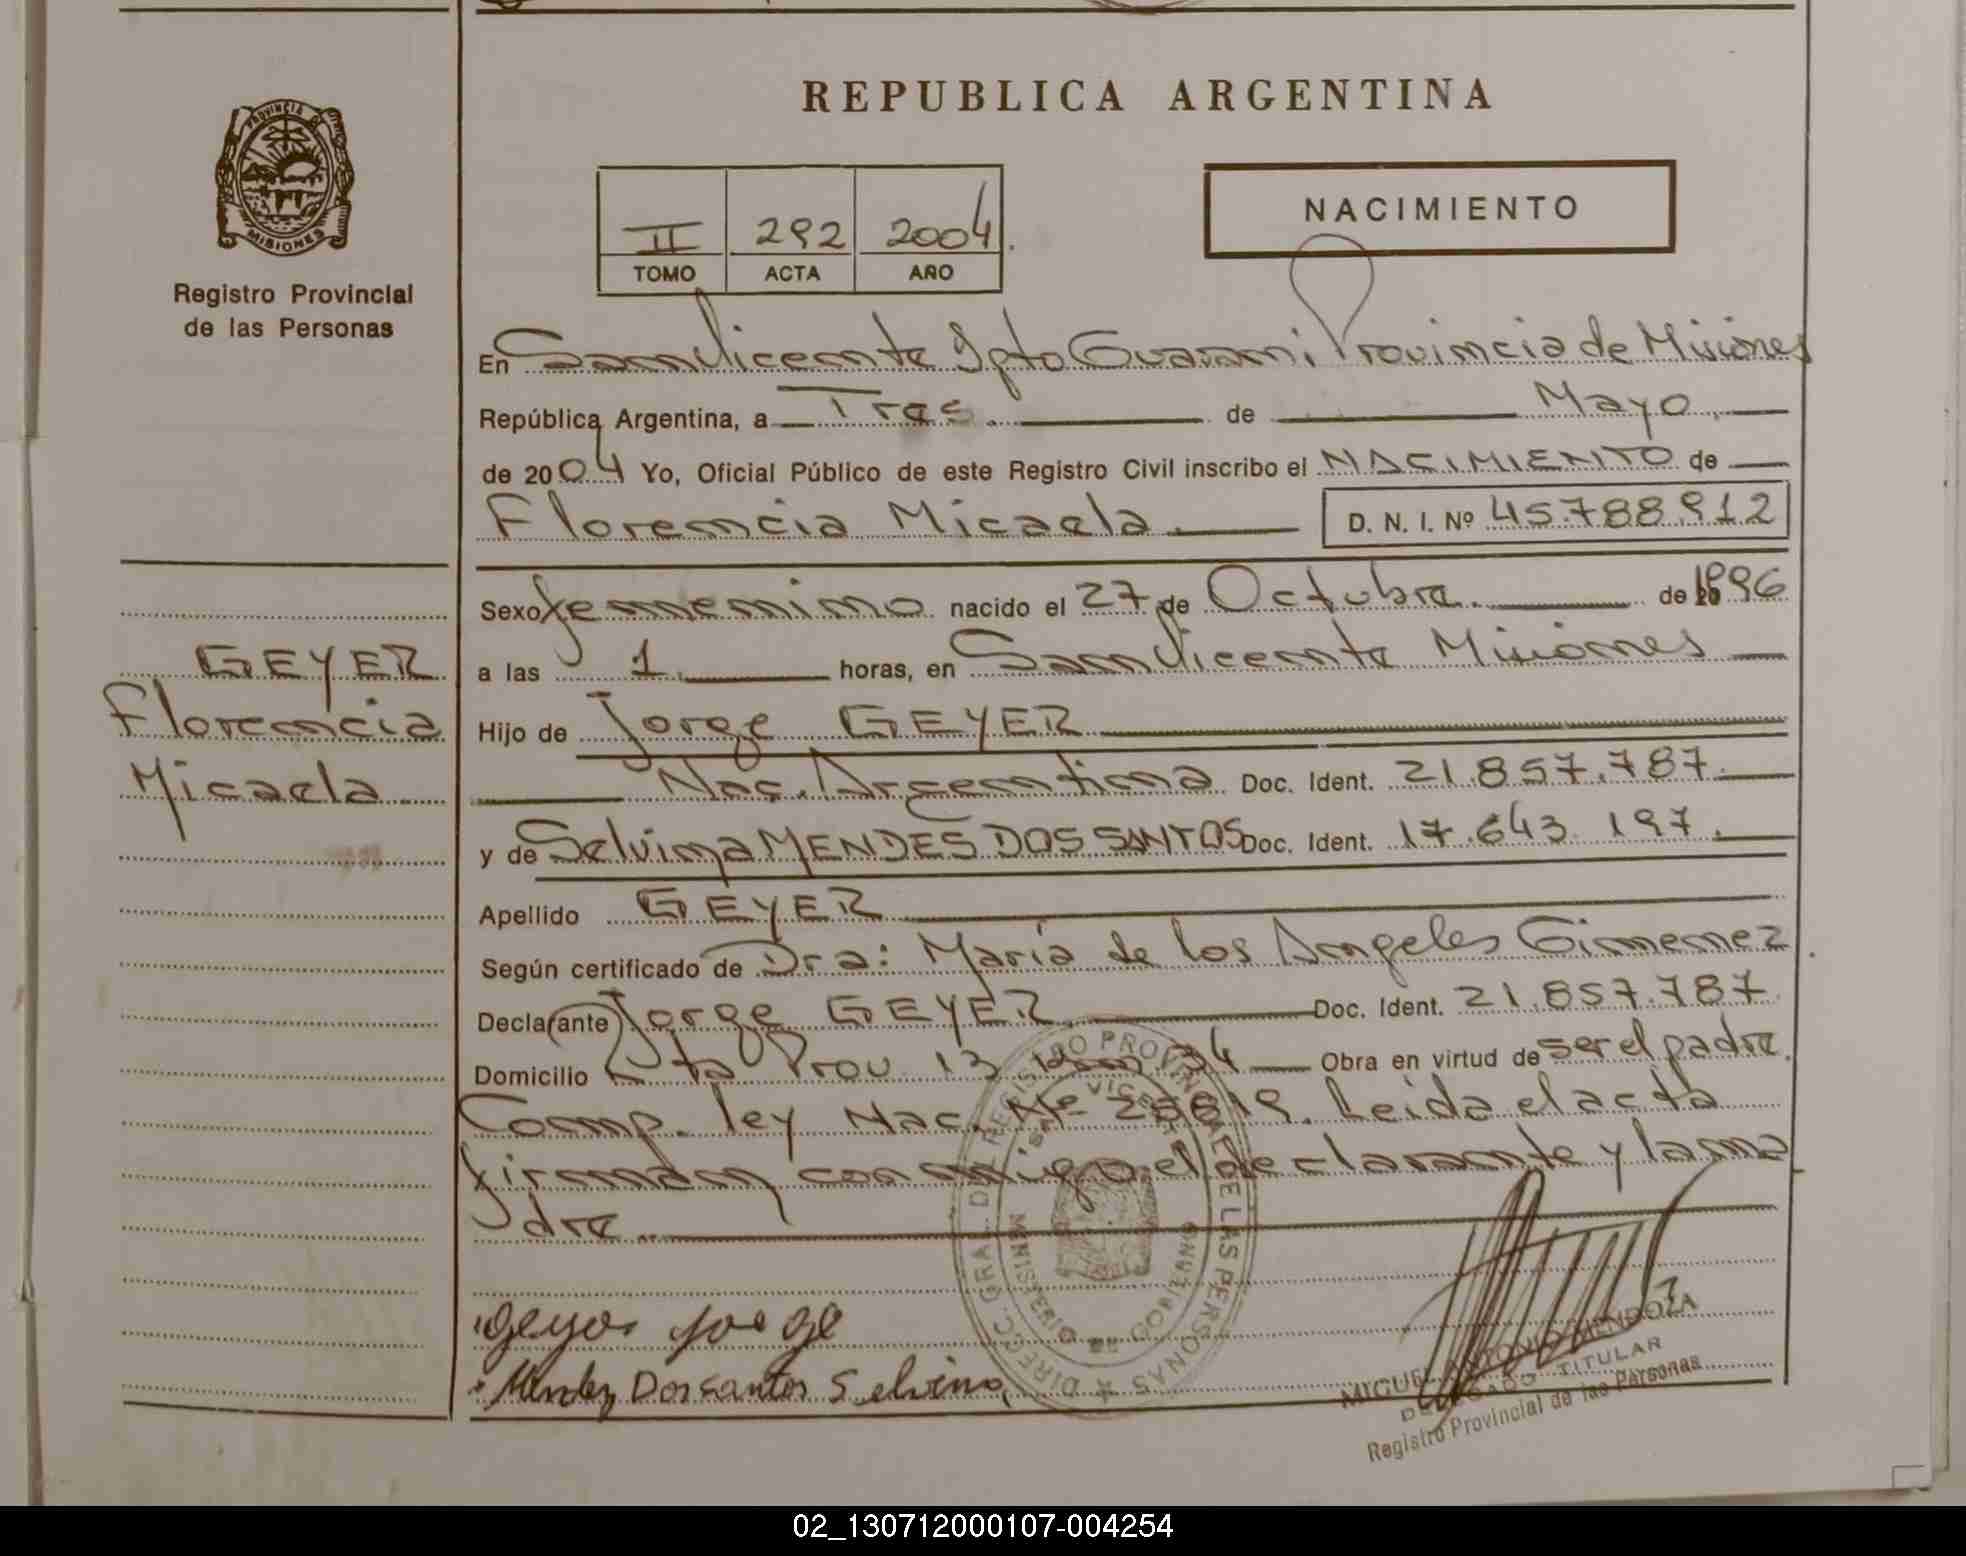 REPUBLICA ARGENTINA
PROVINCIA D
MISIONES
Registro Provincial
de las Personas
II 292 2004.
TOMO ACTA AÑO
NACIMIENTO
En San Vicente Dpto Guarani Provincia de Misiones
República Argentina, a Tres de Mayo
de 2004 Yo, Oficial Público de este Registro Civil inscribo el NACIMIENTO de
Florencia Micaela. D. N. I. Nº 45.788.912
Sexo femenino nacido el 27 de Octubre de 1996
a las 1 horas, en San Vicente Misiones
Hijo de Jorge GEYER
Nac. Argentina Doc. Ident. 21.857.787.
y de Selvina MENDES DOS SANTOS Doc. Ident. 17.643.197.
Apellido GEYER
Según certificado de Dra: María de los Angeles Gimenez.
Declarante Jorge GEYER Doc. Ident. 21.857.787.
Domicilio Ruta Prov 13 Km 34 Obra en virtud de ser el padre.
Comp. ley Nac. Nº 25819. Leida el acta
firman conmigo el declarante y la ma
dre.
GEYER
Florencia
Micaela
geyer jorge
Mendez Dos santos Selvina,
DIRECC. GRAL. DEL REGISTRO PROVINCIAL DE LAS PERSONAS
MINISTERIO DE GOBIERNO
MIGUEL ANTONIO MENDOZA
DELEGADO TITULAR
Registro Provincial de las Personas
02_130712000107-004254